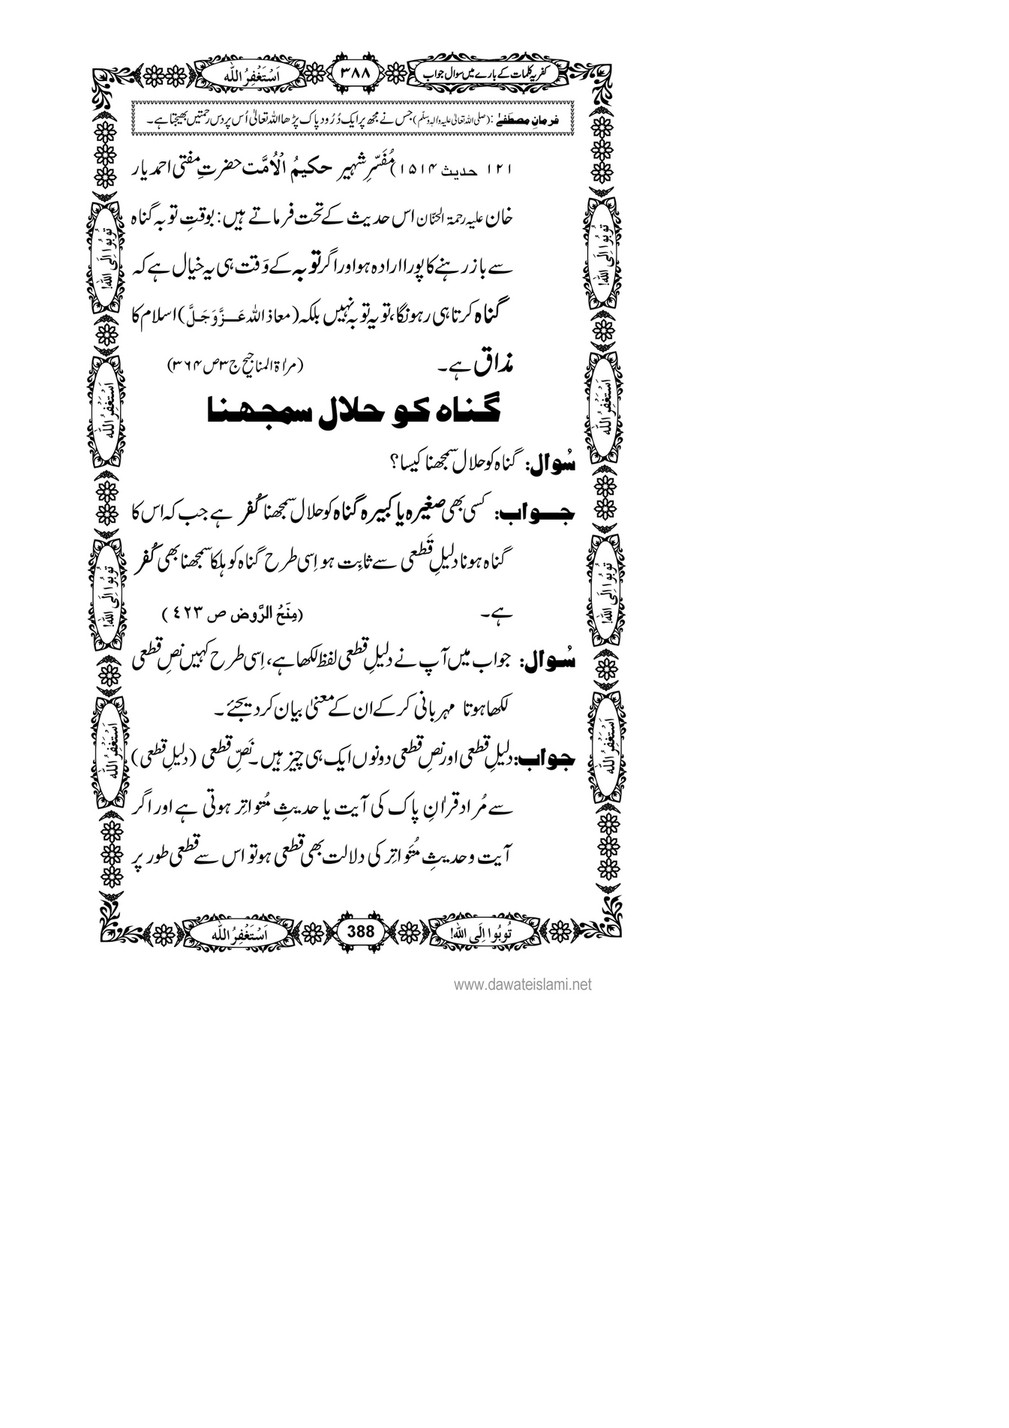 کفریہ کلمات کے بارے میں سوال جواب
٣٨٨
اَسْتَغْفِرُ اللّٰه
فرمانِ مصطَفٰے : (صلی اللہ تعالیٰ علیہ والہ وسلّم) جس نے مجھ پر ایک دُرُود پاک پڑھا اللہ تعالیٰ اُس پر دس رحمتیں بھیجتا ہے۔
١٢١ حدیث ١٥١٤) مُفَسّرِ شہیر حکیمُ الْاُمَّت حضرتِ مفتی احمد یار
خان علیہ رحمۃ الحنّان اس حدیث کے تحت فرماتے ہیں: بوقتِ توبہ گناہ
سے باز رہنے کا پورا ارادہ ہو اور اگر توبہ کے وَقت ہی یہ خیال ہے کہ
گناہ کرتا ہی رہونگا، تو یہ توبہ نہیں بلکہ (معاذ اللہ عَزَّوَجَلَّ) اسلام کا
مذاق ہے۔ (مراٰۃ المناجیح ج٣ص٣٦٤)
گناہ کو حلال سمجھنا
سُوال: گناہ کو حلال سمجھنا کیسا؟
جواب: کسی بھی صغیرہ یا کبیرہ گناہ کو حلال سمجھنا کُفر ہے جب کہ اس کا
گناہ ہونا دلیلِ قَطعی سے ثابِت ہو اِسی طرح گناہ کو ہلکا سمجھنا بھی کُفر
ہے۔ (مِنَحُ الرَّوض ص ٤٢٣)
سُوال: جواب میں آپ نے دلیلِ قطعی لفظ لکھا ہے، اِسی طرح کہیں نَصِ قطعی
لکھا ہوتا مہربانی کر کے ان کے معنیٰ بیان کر دیجئے۔
جواب: دلیلِ قطعی اور نصِ قطعی دونوں ایک ہی چیز ہیں۔ نَصِّ قطعی (دلیلِ قطعی)
سے مُراد قراٰنِ پاک کی آیت یا حدیثِ مُتواتِر ہوتی ہے اور اگر
آیت و حدیثِ مُتَواتِر کی دلالت بھی قطعی ہو تو اس سے قطعی طور پر
تُوبُوا اِلَی اللّٰه!
اَسْتَغْفِرُ اللّٰه
تُوبُوا اِلَی اللّٰه!
اَسْتَغْفِرُ اللّٰه
تُوبُوا اِلَی اللّٰه!
اَسْتَغْفِرُ اللّٰه
تُوبُوا اِلَی اللّٰه!
اَسْتَغْفِرُ اللّٰه
تُوبُوا اِلَی اللّٰه!
388
اَسْتَغْفِرُ اللّٰه
www.dawateislami.net